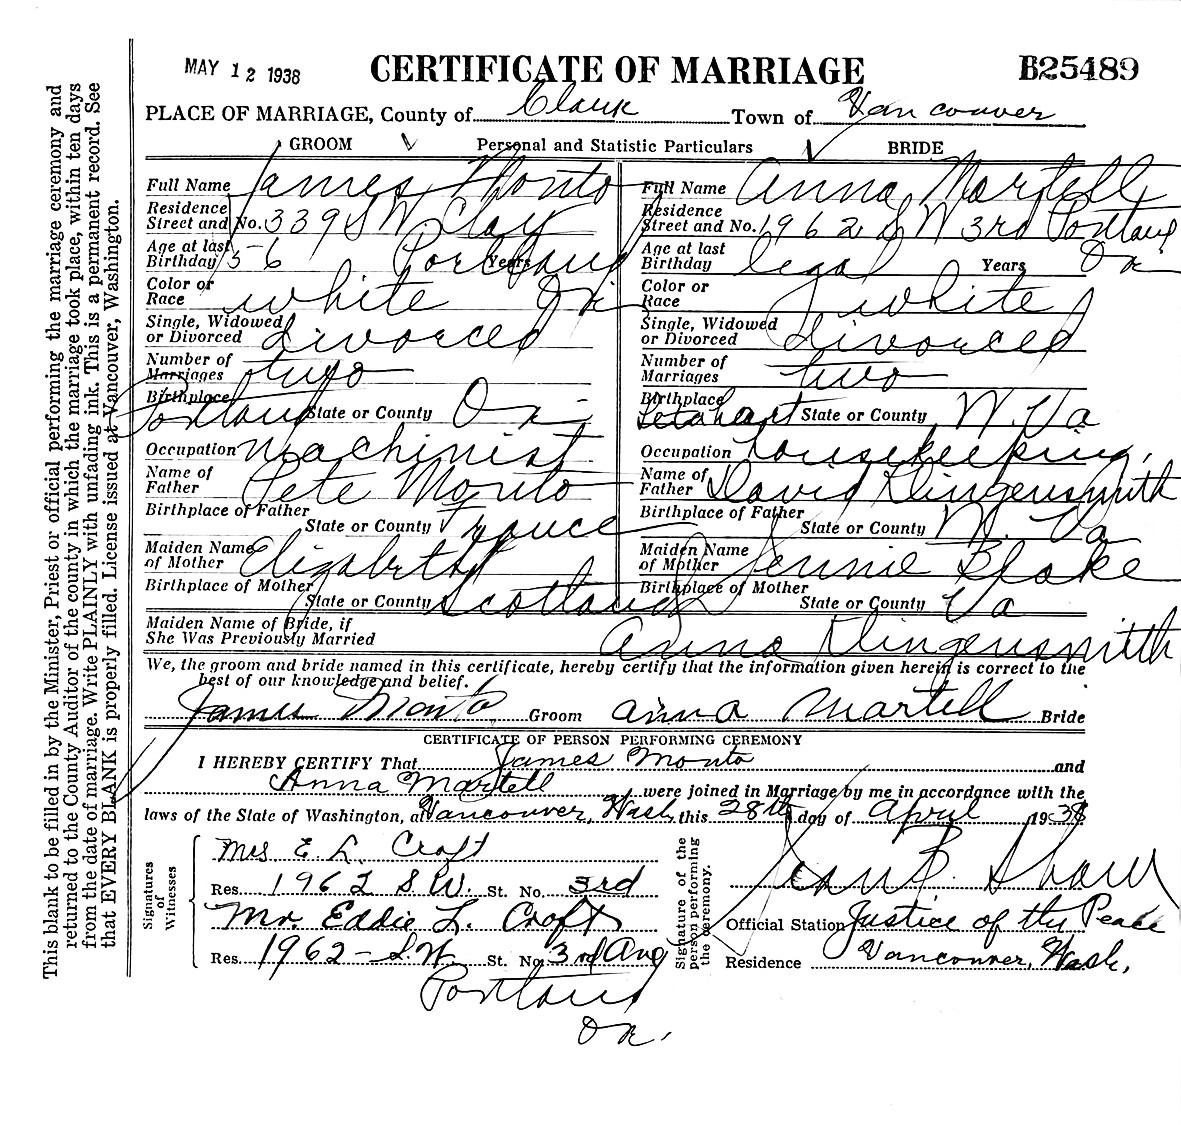 MAY 12 1938
CERTIFICATE OF MARRIAGE
B25489
PLACE OF MARRIAGE, County of Clark Town of Vancouver
GROOM Personal and Statistic Particulars BRIDE
Full Name James Monto Full Name Anna Martell
Residence Residence
Street and No. 339 SW Clay Street and No. 1962 S W 3rd Portland
Age at last Age at last
Birthday 56 Portland Years Birthday legal Years Or
Color or Color or
Race white Or Race white
Single, Widowed Single, Widowed
or Divorced divorced or Divorced divorced
Number of Number of
Marriages two Marriages two
Birthplace Birthplace
Portland State or County Or State or County W. Va
Occupation Machinist Occupation housekeeping
Name of Name of
Father Pete Monto Father David Klingensmith
Birthplace of Father Birthplace of Father
State or County France State or County W. Va
Maiden Name Maiden Name
of Mother Elizabeth of Mother Jennie Blake
Birthplace of Mother Birthplace of Mother
State or County Scotland State or County Va
Maiden Name of Bride, if
She Was Previously Married Anna Klingensmith
We, the groom and bride named in this certificate, hereby certify that the information given herein is correct to the
best of our knowledge and belief.
James Monto Groom Anna Martell Bride
CERTIFICATE OF PERSON PERFORMING CEREMONY
I HEREBY CERTIFY That James Monto and
Anna Martell were joined in Marriage by me in accordance with the
laws of the State of Washington, at Vancouver, Wash, this 28th day of April 1938
Signatures of Witnesses
Mrs E. L. Croft
Res. 1962 S.W. St. No. 3rd
Mr. Eddie L. Croft
Res. 1962 - S.W. St. No. 3rd Ave
Portland
Or.
Signature of the person performing the ceremony.
Shaw
Official Station Justice of the Peace
Residence Vancouver, Wash.
This blank to be filled in by the Minister, Priest or official performing the marriage ceremony and
returned to the County Auditor of the county in which the marriage took place, within ten days
from the date of marriage. Write PLAINLY with unfading ink. This is a permanent record. See
that EVERY BLANK is properly filled. License issued at Vancouver, Washington.